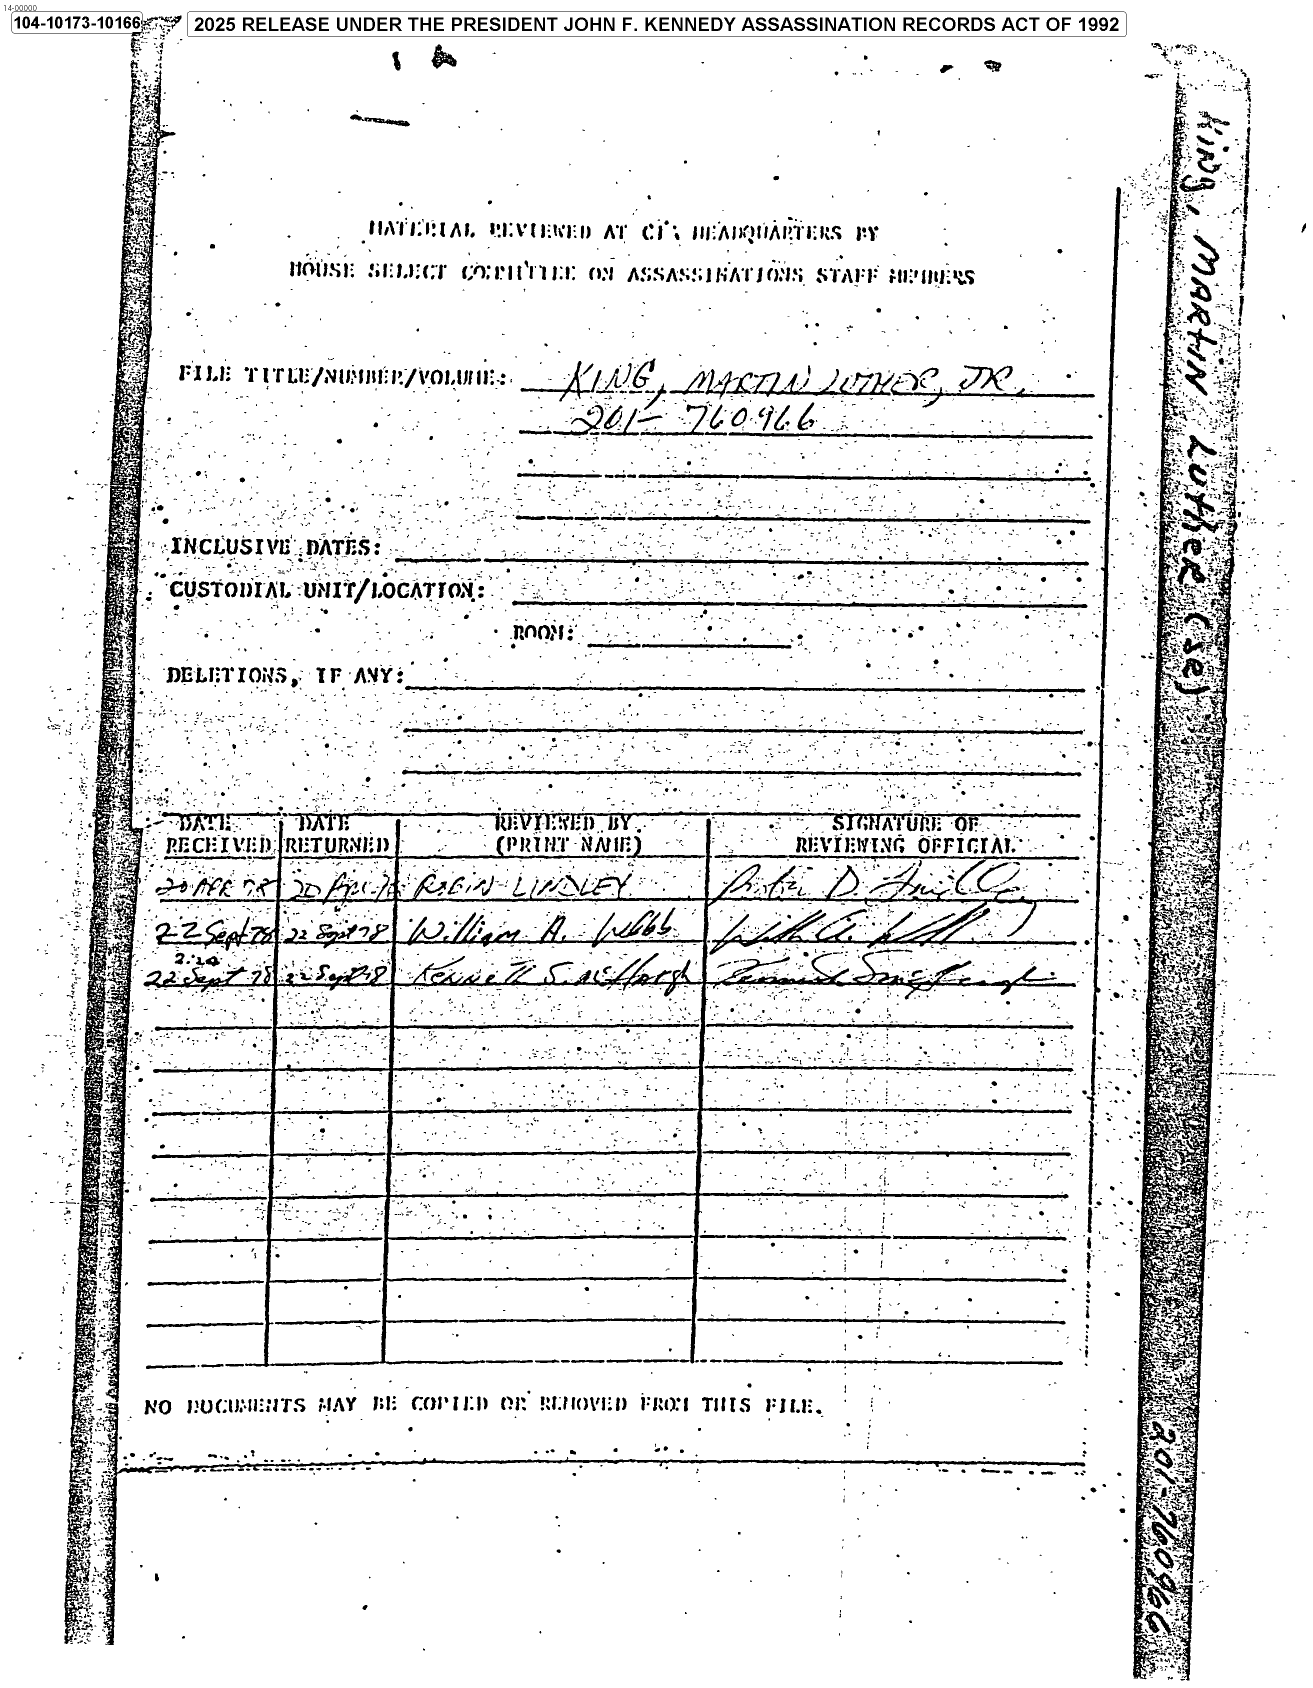 14-00000
104-10173-10166
2025 RELEASE UNDER THE PRESIDENT JOHN F. KENNEDY ASSASSINATION RECORDS ACT OF 1992
MATERIAL REVIEWED AT CIA HEADQUARTERS BY
HOUSE SELECT COMMITTEE ON ASSASSINATIONS STAFF MEMBERS
FILE TITLE/NUMBER/VOLUME: KING, MARTIN LUTHER, JR.
201- 760966
INCLUSIVE DATES:
CUSTODIAL UNIT/LOCATION:
ROOM:
DELETIONS, IF ANY:
DATE RECEIVED DATE RETURNED REVIEWED BY (PRINT NAME) SIGNATURE OF REVIEWING OFFICIAL
20 APR 78 20 Apr 78 ROBIN LINDLEY
22 Sept 78 22 Sept 78 William A. Webb
22 Sept 78 22 Sept 78 Kenneth S.
NO DOCUMENTS MAY BE COPIED OR REMOVED FROM THIS FILE.
King, MARTIN LUTHER (se)
201-760966